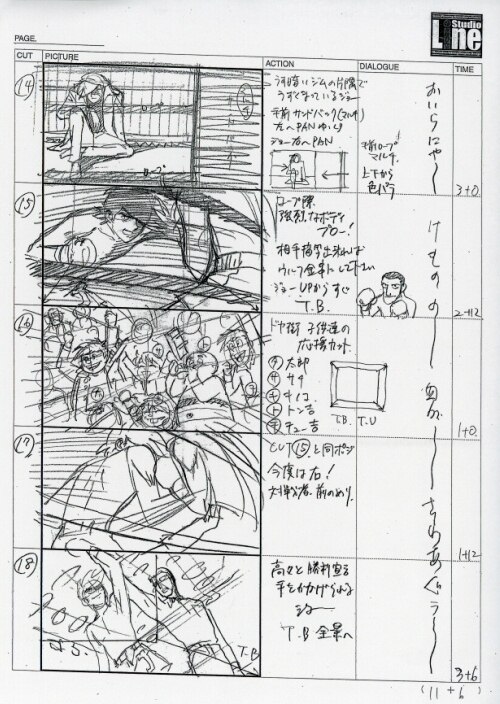 Studio
Line
PAGE.
CUT PICTURE ACTION DIALOGUE TIME
14
うす暗いジムの片隅で
うずくまっているジョー
手前サンドバック(マルチ)
左へPANゆっくり
ジョー右へPAN
手前ロープ
マルチ.
上下から
色パラ
おいらにゃ〜
3+0
15
ロープ際
強烈なボディ
ブロー!
ジョーUPからすぐ
T.B.
けものの〜
2+12
16
ドヤ街 子供達の
応援カット
太郎
サチ
キノコ
トン吉
チュー吉
T.B. T.U
血が〜
1+0
17
CUT 15 と同ポジ
今度は右!
対戦者.前のめり.
さわあぐぅ〜
1+12
18
高々と勝利宣言
手をかかげられる
ジョー
T.B 全景へ
T.B
3+6
(11+6)